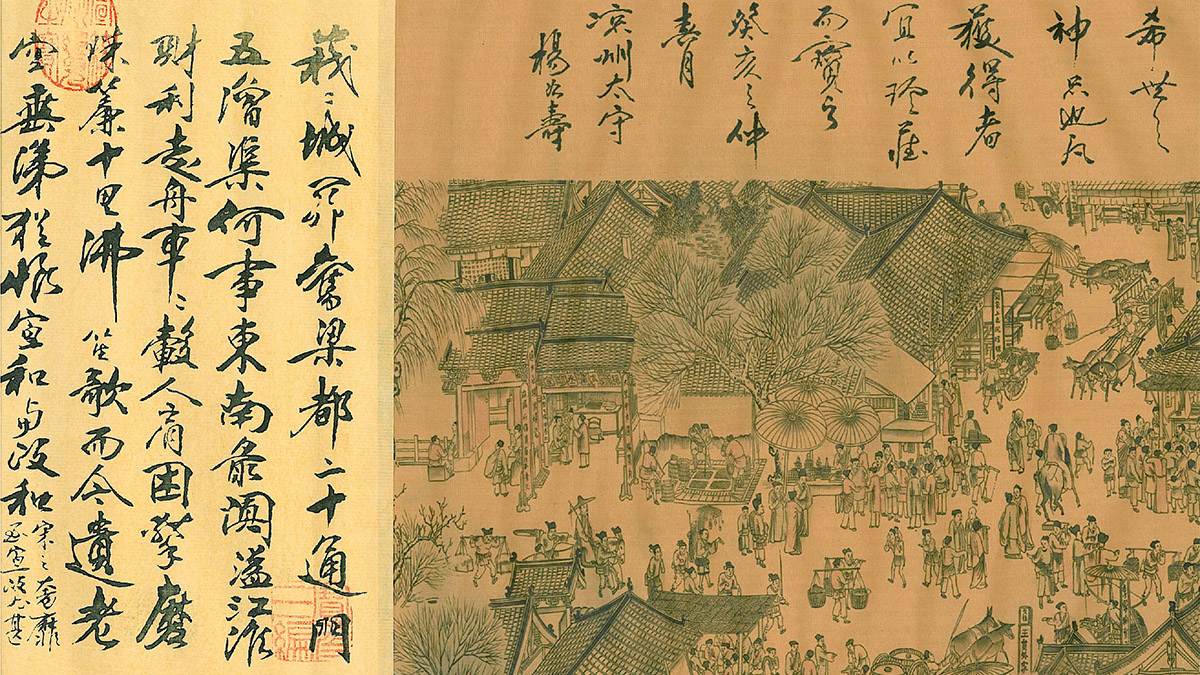 希世之
神品也凡
獲得者
宜以珍藏
而寶
癸亥之仲
春月
凉州太守
楊壽
峩〻城闕舊梁都二十通門
五漕渠何事東南最闐溢江淮
財利走舟車〻轂人肩困擊磨
珠簾十里沸笙歌而今遺老
空垂涕猶恨宣和與政和
宋之奢靡
至宣政尤甚